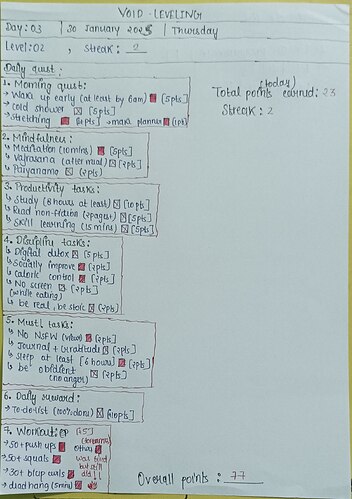 VOID-LEVELING
Day: 03 | 30 January 2025 | Thursday
Level: 02 , Streak: 2
Daily quest:
1. Morning quest:
↳ Wake up early (at least by 6am) [5pts]
↳ cold shower [5pts]
↳ stretching [1pts] → make planner (1pt)
(today)
Total points earned: 23
Streak: 2
2. Mindfulness:
↳ Meditation (10mins) [5pts]
↳ Vajrasana (after meal) [2pts]
↳ Paryanama (2pts)
3. Productivity tasks:
↳ Study (8 hours at least) [10pts]
↳ Read non-fiction (2pages) [5pts]
↳ Skill learning (15mins) [5pts]
4. Discipline tasks:
↳ Digital detox [5pts]
↳ Socially improve [2pts]
↳ caloric control [2pts]
↳ No screen [2pts]
(while eating)
↳ be real, be stoic (2pts)
5. Must! tasks:
↳ No NSFW (view) [2pts]
↳ Journal + Gratitude [2pts]
↳ Sleep at least [6 hours] [2pts]
↳ be obidient [2pts]
(no anger)
6. Daily reward:
↳ To-do-list (100% done) [10pts]
7. Workout: [15]
↳ 50+ push ups others
↳ 50+ squats was tired
but still
↳ 30+ bicep curls did!
↳ dead hang (5min)
Overall points: 77